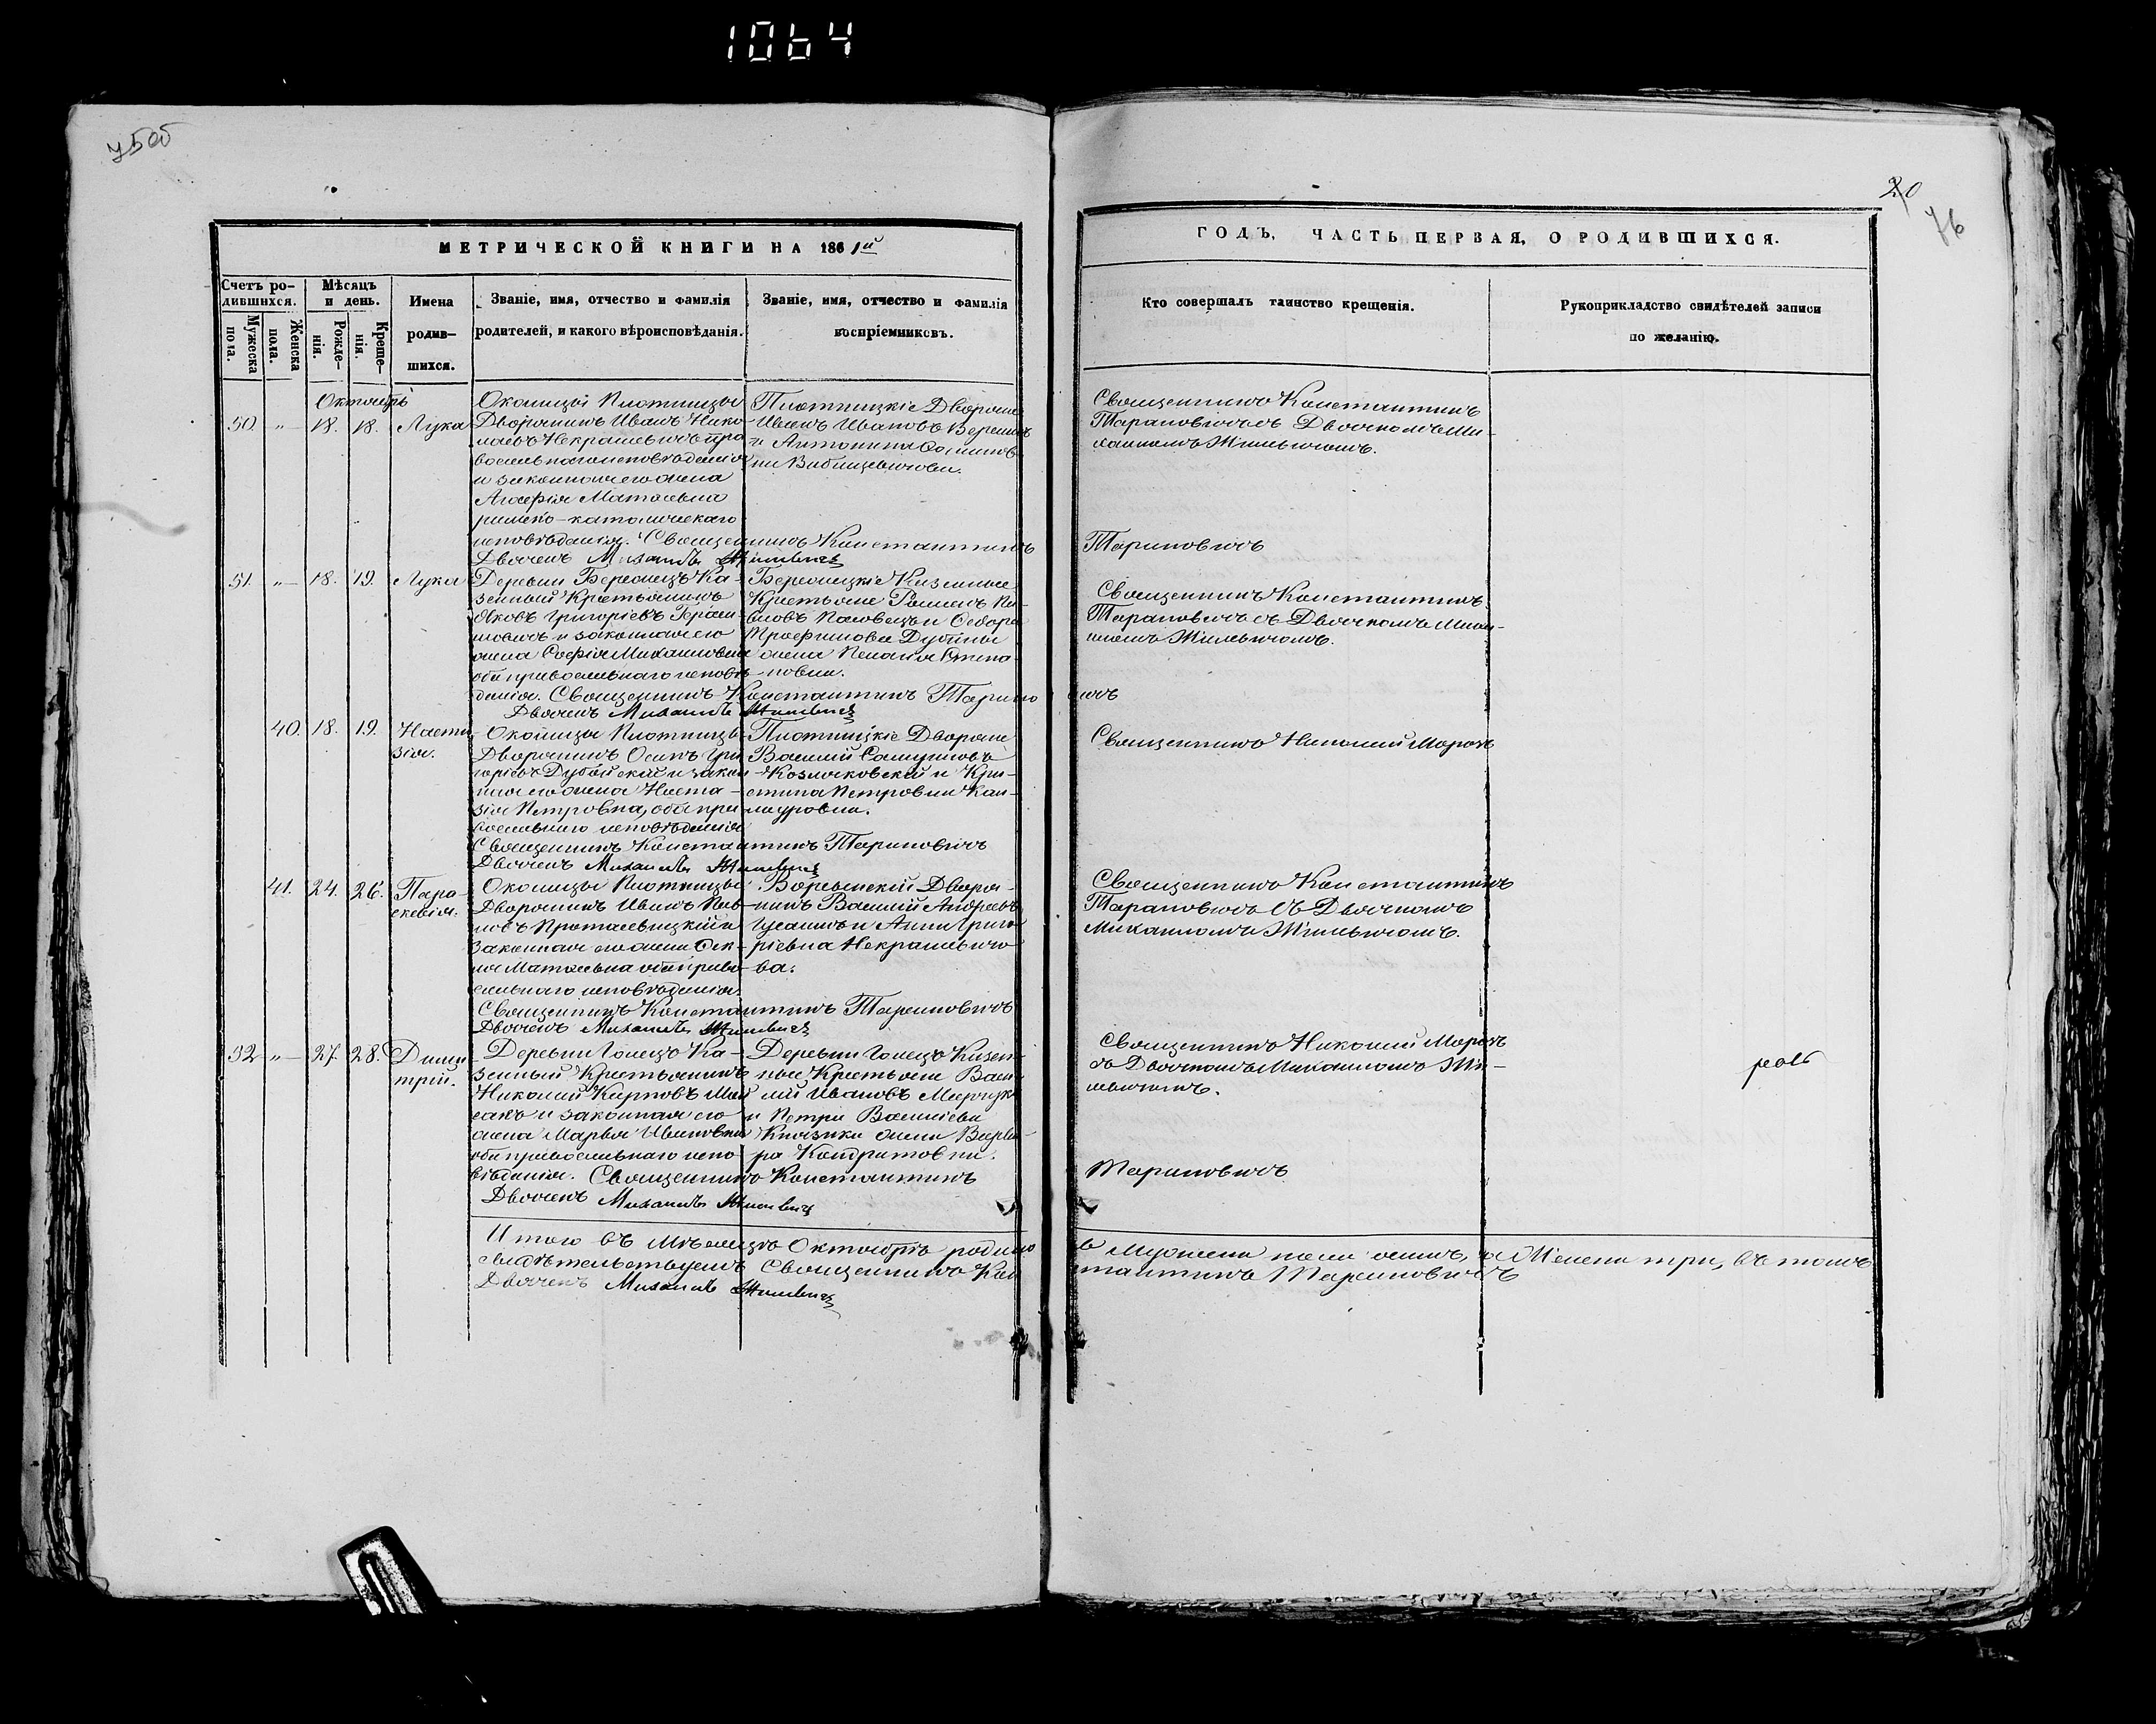 1064
75об
20
76
МЕТРИЧЕСКОЙ КНИГИ НА 1861й
ГОДЪ, ЧАСТЬ ПЕРВАЯ, О РОДИВШИХСЯ.
Счетъ ро-
дившихся.
Мужеска
пола.
Женска
пола.
Мѣсяцъ
и день.
Рожде-
нія.
Креще-
нія.
Имена
родив-
шихся.
Званіе, имя, отчество и фамилія
родителей, и какого вѣроисповѣданія.
Званіе, имя, отчество и фамилія
воспріемниковъ.
Кто совершалъ таинство крещенія.
Рукоприкладство свидѣтелей записи
по желанію.
Октябрь
50. "— 18. 18. Лука
Околицы Плотницы
Дворянинъ Иванъ Нико-
лаевъ Некрашевичъ пра-
вославнаго исповѣданія
и законная его жена
Матѳеевна
римско-католическаго
исповѣданія. Священникъ Константинъ
Дьячекъ Михаилъ Жилевичъ
Плотницкіе Дворяне
Иванъ Ивановъ
и Антонина Осипов-
на
Священникъ Константинъ
Тарановичъ съ Дьячкомъ Ми-
хаиломъ Жилевичомъ.
Тарановичъ
51. "— 18. 19. Лука
Деревни Бережецъ Ка-
зенный Крестьянинъ
Яковъ Григорьевъ
и законная его
жена Софія Михаиловна
оба православнаго исповѣ-
данія. Священникъ Константинъ Тарано
вичъ
Дьячекъ Михаилъ Жилевичъ
Бережецкіе Казенные
Крестьяне Романъ Па-
вловъ и Ѳедора
Трофимова
жена Пелагія Степа-
новна.
Священникъ Константинъ
Тарановичъ съ Дьячкомъ Миха-
иломъ Жилевичомъ.
40. 18. 19. Наста-
зія.
Околицы Плотницы
Дворянинъ Осипъ Гри-
горьевъ Дубойскій и закон-
ная его жена Наста-
зія Петровна, оба пра-
вославнаго исповѣданія
Священникъ Константинъ Тарановичъ
Дьячекъ Михаилъ Жилевичъ
Плотницкіе Дворяне
Василій Самуиловъ
Козляковскій и Кри-
стина Петровна Кал-
лауровна.
Священникъ Николай Морозъ
41. 24. 26. Пара-
скевія.
Околицы Плотницы
Дворянинъ Иванъ Пав-
ловъ Протасевицкій и
законная его жена Ѳек-
ла Матѳеевна оба право-
славнаго исповѣданія.
Священникъ Константинъ Тарановичъ
Дьячекъ Михаилъ Жилевичъ
Дворя-
нинъ Василій Андреевъ
и Анна Григо-
рьевна Некрашевичо-
ва.
Священникъ Константинъ
Тарановичъ съ Дьячкомъ
Михаиломъ Жилевичомъ.
52. "— 27. 28. Дими-
трій.
ДеревниГолецъ Ка-
зенный Крестьянинъ
Николай Карповъ
и законная его
жена Марья Ивановна
оба православнаго испо-
вѣданія. Священникъ Константинъ
Дьячекъ Михаилъ Жилевичъ
Деревни Голецъ Казен-
ные Крестьяне Васи-
лій Ивановъ
и Петра Васильева
жена Варва-
ра Кондратовна.
Священникъ Николай Морозъ
съ Дьячкомъ Михаиломъ Жи-
левичомъ.
Тарановичъ
Итого въ Мѣсяцѣ Октябрѣ родило
сь Мужеска пола осмь, а Женска три, въ томъ
свидѣтельствуемъ Священникъ Кон
стантинъ Тарановичъ
Дьячекъ Михаилъ Жилевичъ